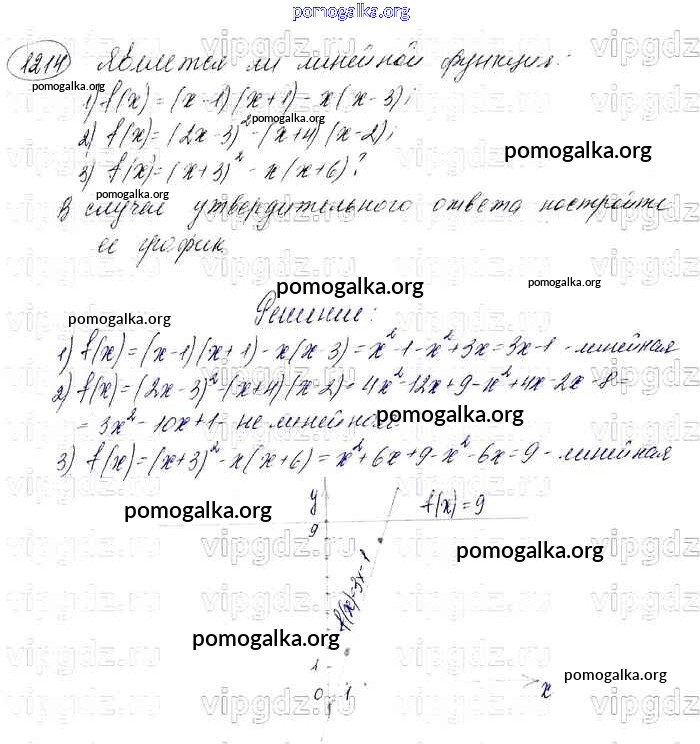 pomogalka.org
1214 Является ли линейной функция:
pomogalka.org
1) f(x) = (x-1)(x+1) - x(x-3);
pomogalka.org
2) f(x) = (2x-3)² - (x+4)(x-2);
3) f(x) = (x+3)² - x(x+6)?
pomogalka.org
pomogalka.org
В случае утвердительного ответа постройте
ее график.
pomogalka.org
pomogalka.org
pomogalka.org
pomogalka.org
Решение:
1) f(x) = (x-1)(x+1) - x(x-3) = x²-1-x²+3x = 3x-1 - линейная
2) f(x) = (2x-3)² - (x+4)(x-2) = 4x²-12x+9-x²+4x-2x-8=
= 3x²-10x+1 - не линейная.
pomogalka.org
3) f(x) = (x+3)² - x(x+6) = x²+6x+9-x²-6x = 9 - линейная
y
9
f(x) = 9
pomogalka.org
pomogalka.org
f(x)=3x-1
pomogalka.org
1
pomogalka.org
0 1 x
vipgdz.ru